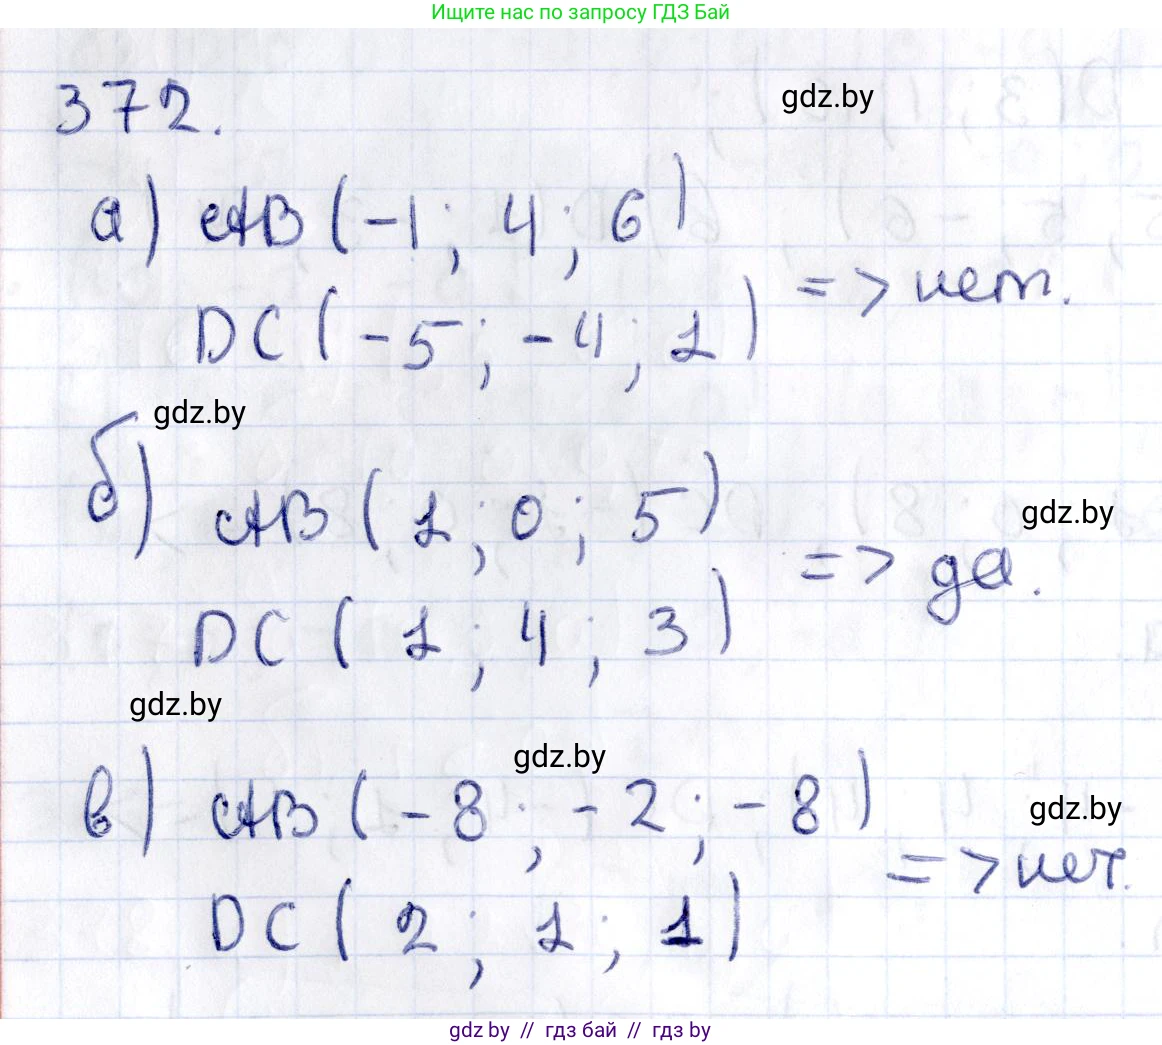 Ищите нас по запросу ГДЗ Бай
372.
gdz.by
а) AB (-1; 4; 6)
DC (-5; -4; 1) => нет.
gdz.by
б) AB (1; 0; 5)
gdz.by
DC (1; 4; 3) => да.
gdz.by
gdz.by
в) AB (-8; -2; -8)
gdz.by
DC (2; 1; 1) => нет.
gdz.by // гдз бай // гдз by